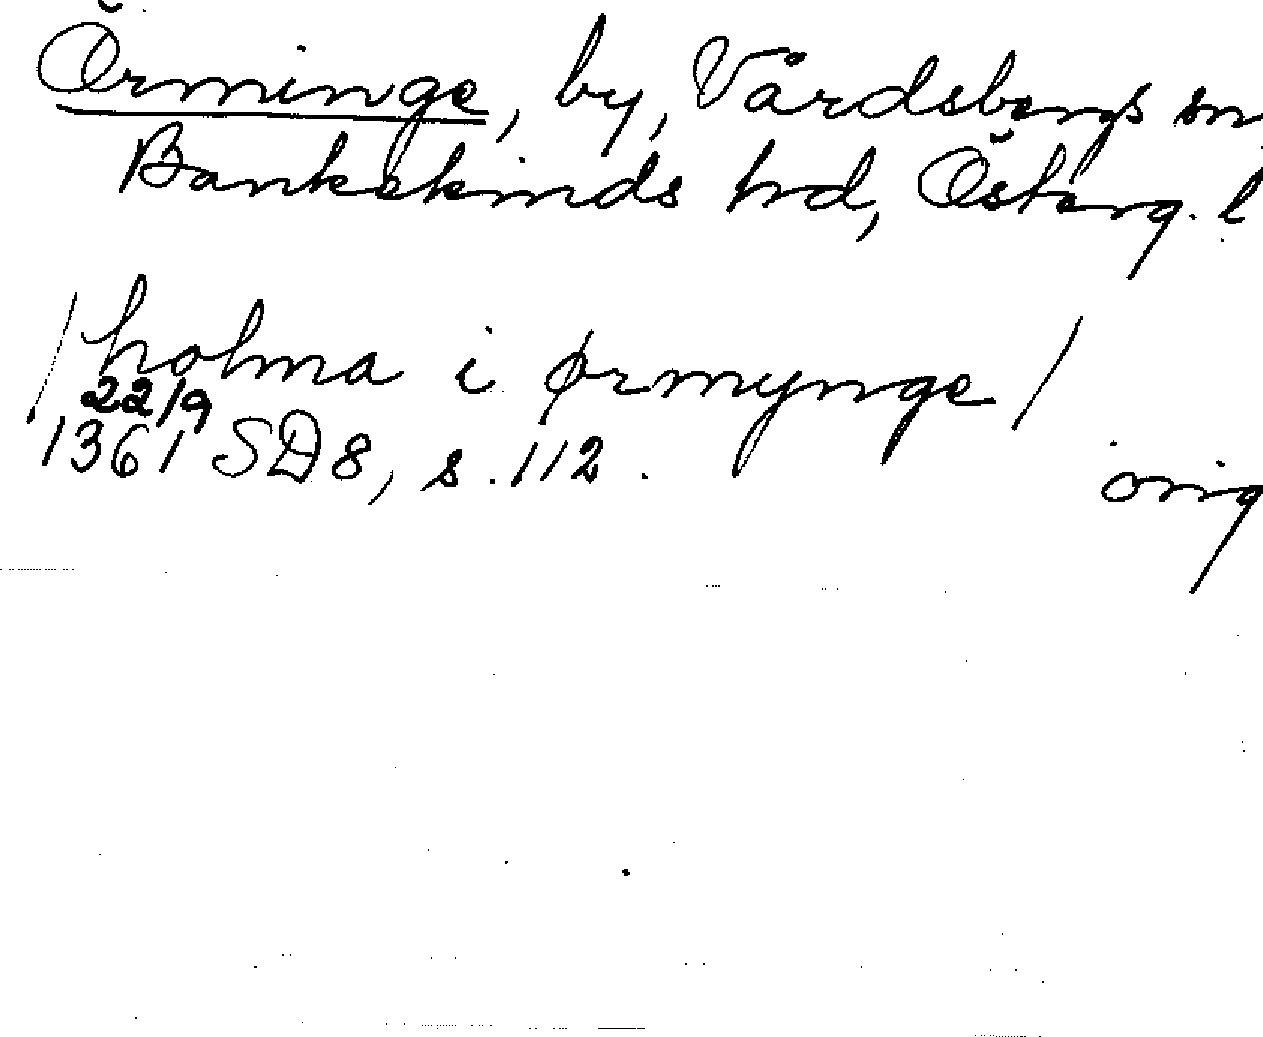 Örminge, by, Vårdsbergs sn,
Bankekinds hd, Österg. l
/ holma i ørmynge /
22/9
1361 SD 8, s. 112.
orig